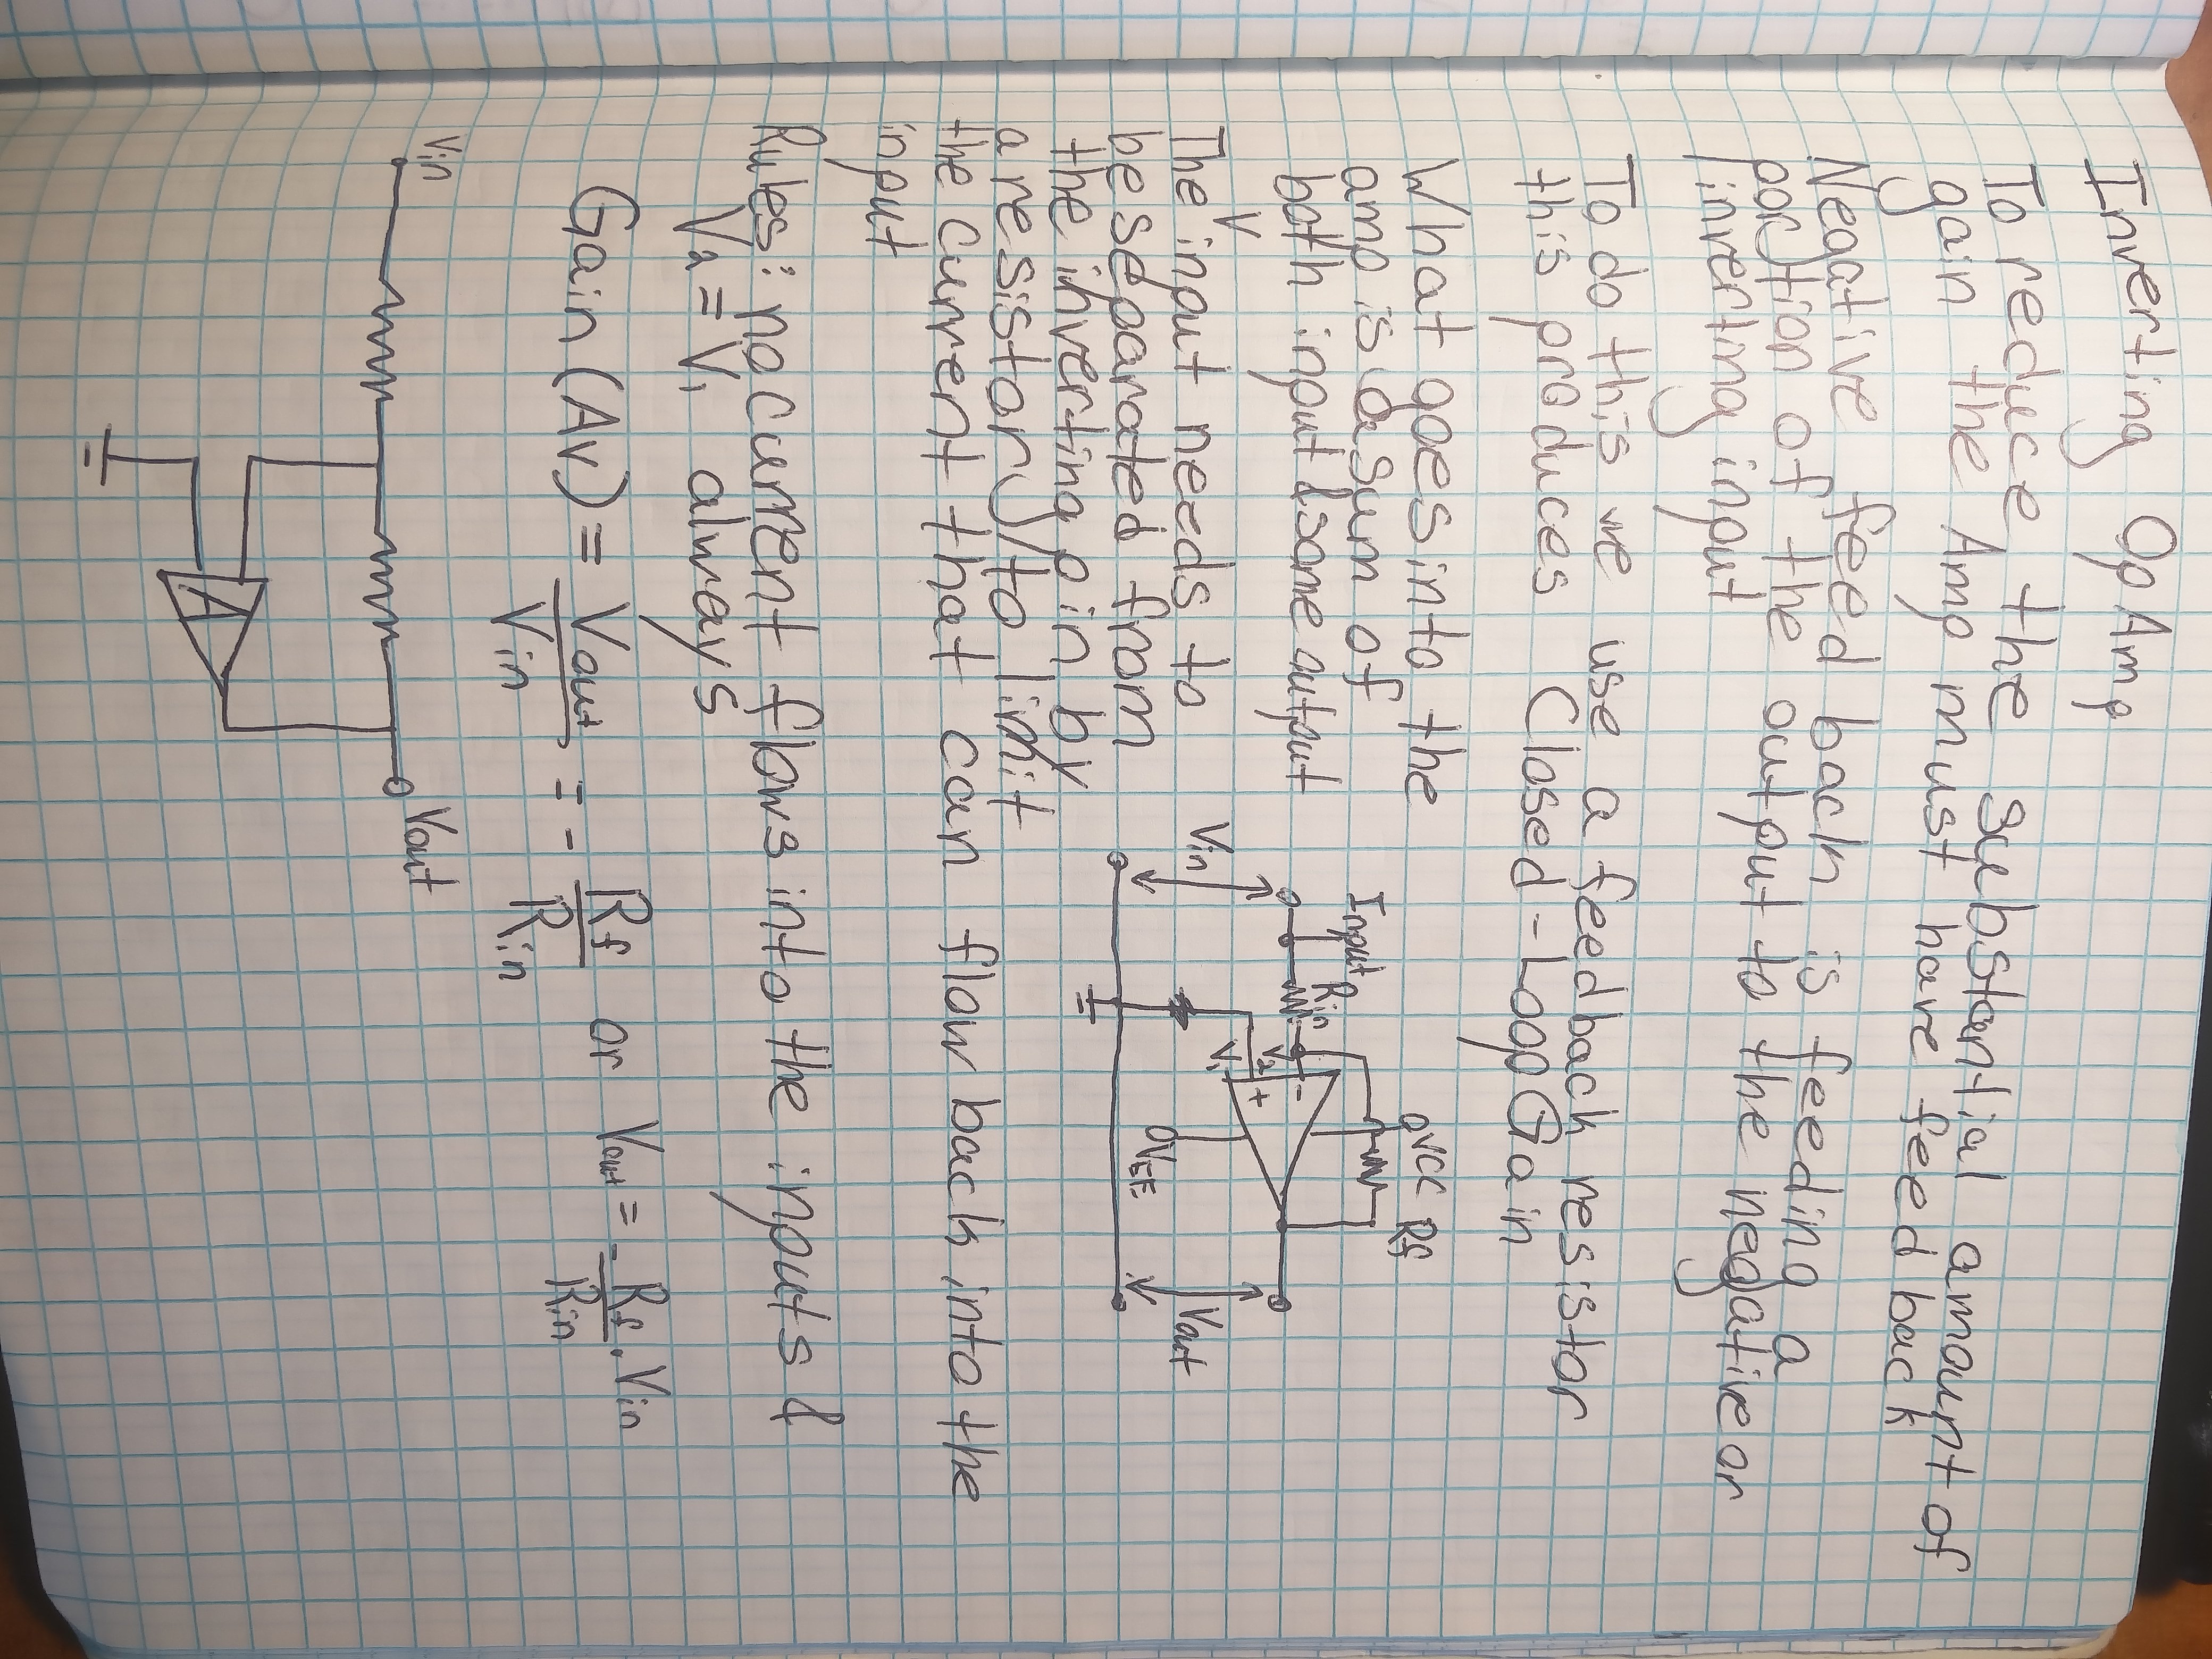 Inverting Op Amp
To reduce the substantial amount of
gain the Amp must have feed back
Negative feed back is feeding a
portion of the output to the negative or
inverting input
To do this we use a feedback resistor
this produces Closed-Loop Gain
What goes into the
amp is a sum of
both input & some output
V
The input needs to
be separated from
the inverting pin by
a resistor to limit
the current that can flow back into the
input
VCC Rf
Input Rin
V2 -
V1 +
Vin
Vout
VEE
Rules: no current flows into the inputs &
V2 = V1 always
Gain (Av) = Vout / Vin = - Rf / Rin or Vout = - Rf / Rin . Vin
Vin
Vout
A